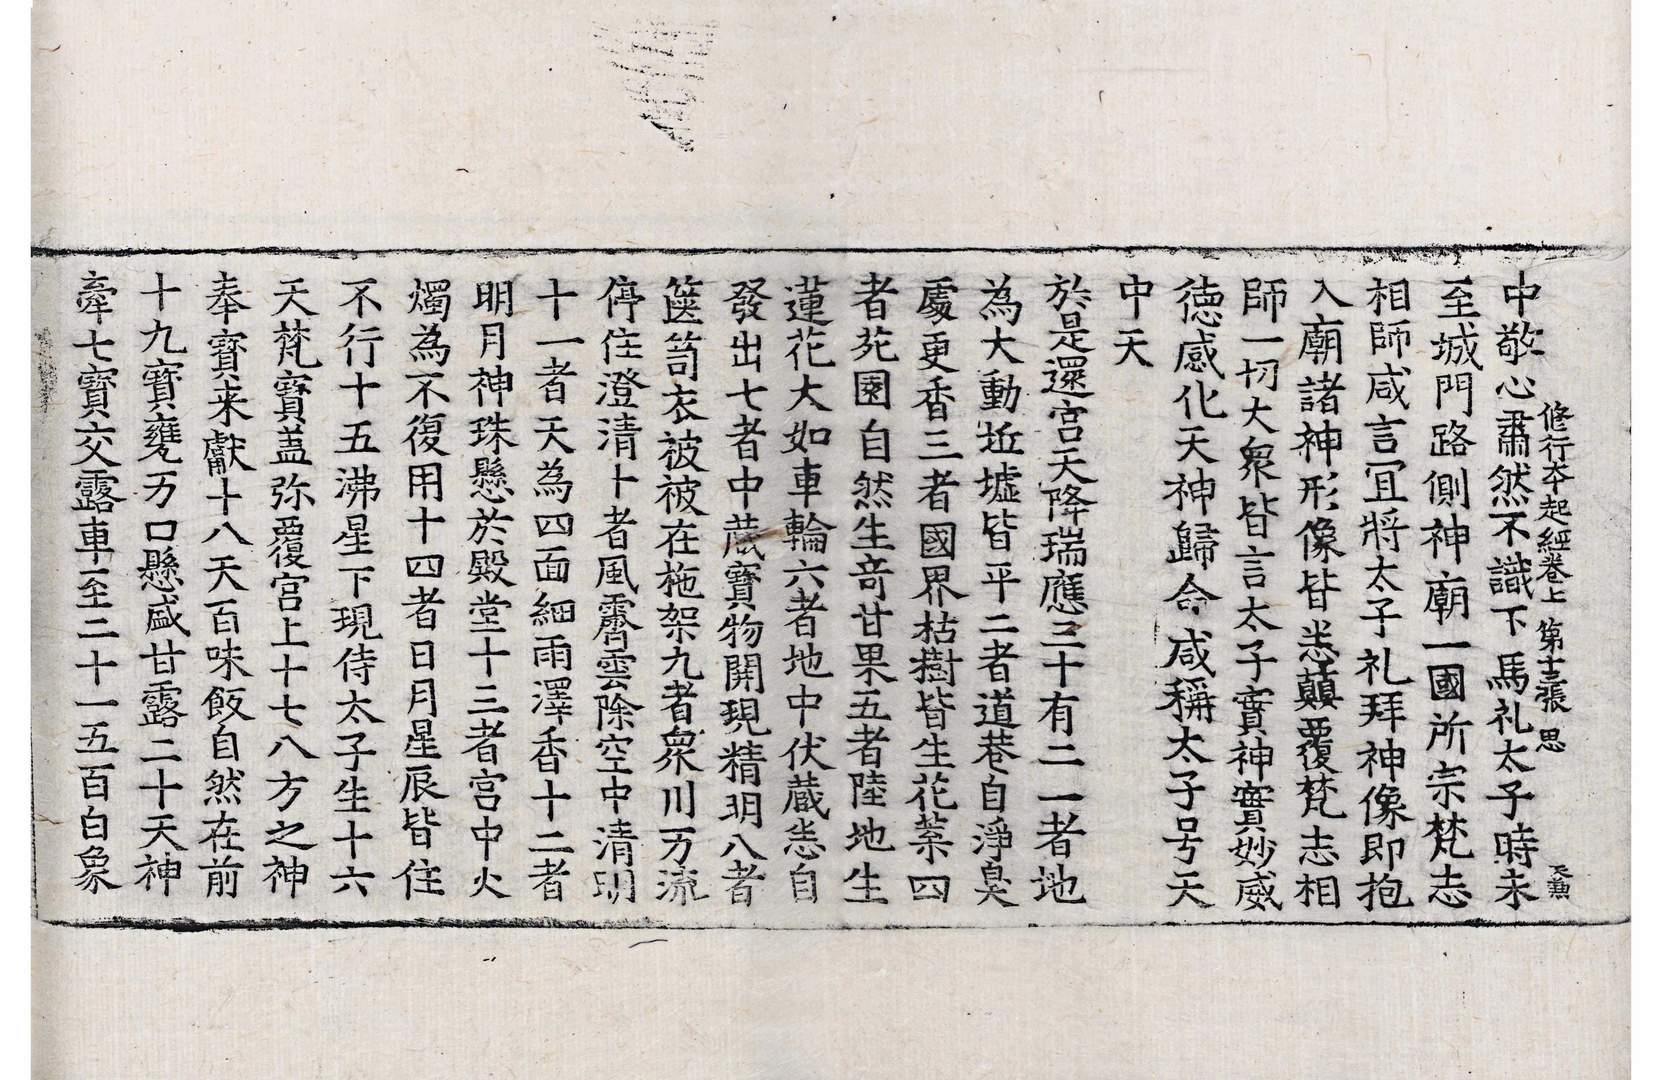 修行本起經卷上 第十三張 思
中敬心肅然不識下馬礼太子時未
至城門路側神廟一國所宗梵志
相師咸言宜將太子礼拜神像即抱
入廟諸神形像皆悉顛覆梵志相
師一切大衆皆言太子實神實妙威
德感化天神歸命咸稱太子号天
中天
於是還宮天降瑞應三十有二一者地
為大動坵墟皆平二者道巷自淨臭
處更香三者國界枯樹皆生花葉四
者苑園自然生奇甘果五者陸地生
蓮花大如車輪六者地中伏蔵悉自
發出七者中蔵寶物開現精明八者
篋笥衣被被在柂架九者衆川万流
停住澄清十者風霽雲除空中清明
十一者天為四面細雨澤香十二者
明月神珠懸於殿堂十三者宮中火
燭為不復用十四者日月星辰皆住
不行十五沸星下現侍太子生十六
天梵寶盖弥覆宮上十七八方之神
奉寶来獻十八天百味飯自然在前
十九寶甕万口懸盛甘露二十天神
牽七寶交露車至二十一五百白象